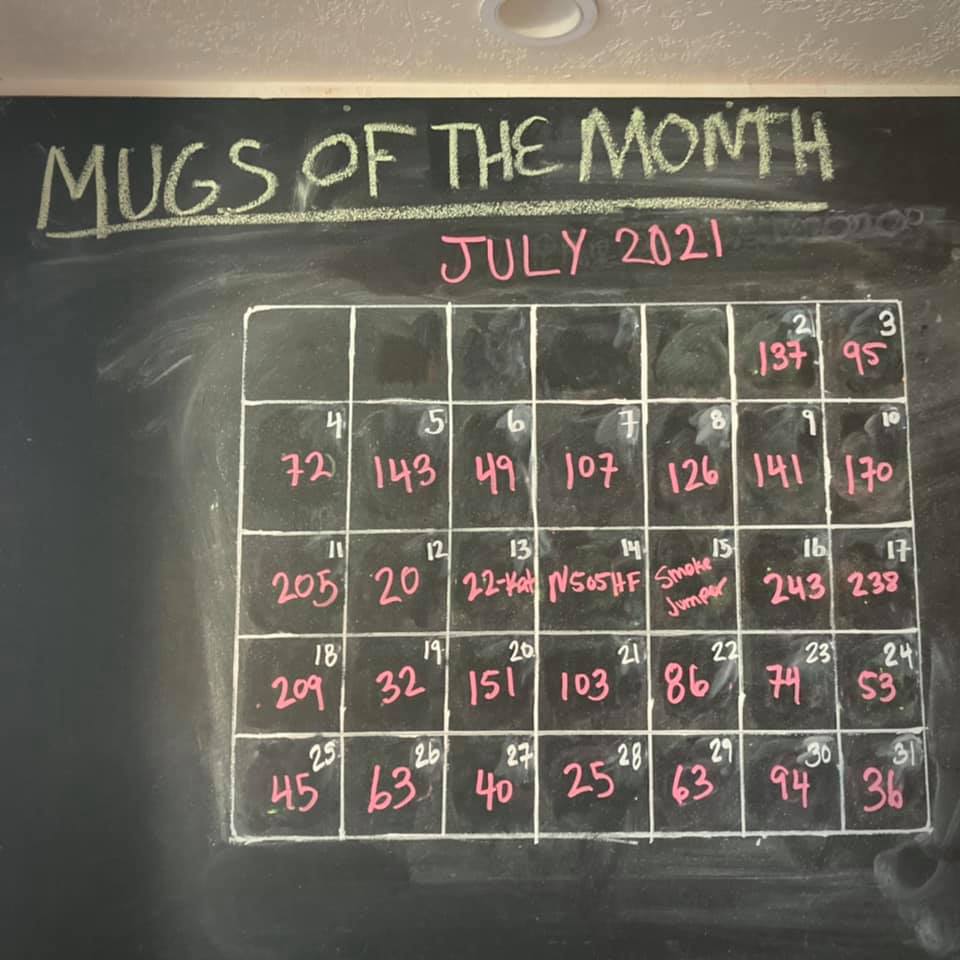 MUGS OF THE MONTH
JULY 2021
2 3
137 95
4 5 6 7 8 9 10
72 143 49 107 126 141 170
11 12 13 14 15 16 17
205 20 22-Kat N505HF Smoke Jumper 243 238
18 19 20 21 22 23 24
209 32 151 103 86 74 53
25 26 27 28 29 30 31
45 63 40 25 63 94 36